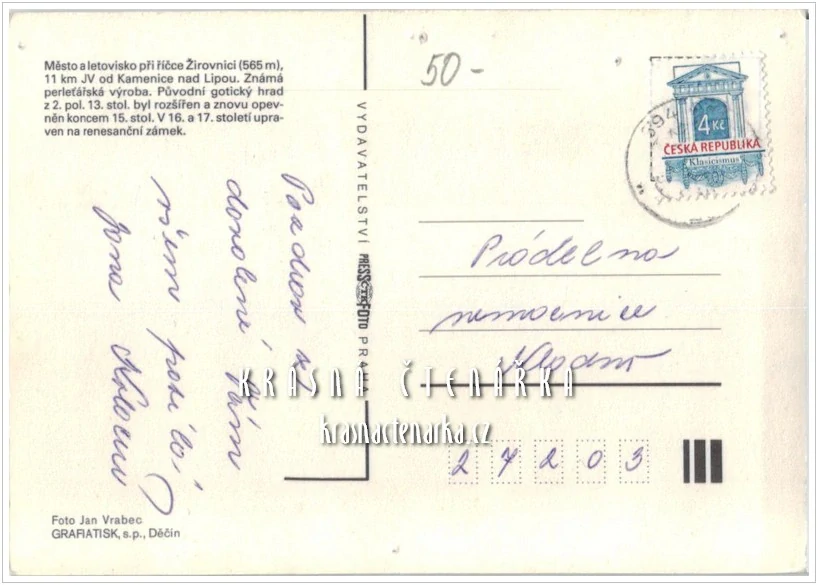 Město a letovisko při říčce Žirovnici (565 m),
11 km JV od Kamenice nad Lipou. Známá
perleťářská výroba. Původní gotický hrad
z 2. pol. 13. stol. byl rozšířen a znovu opev-
něn koncem 15. stol. V 16. a 17. století upra-
ven na renesanční zámek.
50-
4 Kč
ČESKA REPUBLIKA
Klasicismus
394
VYDAVATELSTVÍ PRESSFOTO PRAHA
ČTK
Pozdrav z
dovolené Vám
všem posílá
Jana
Prádelna
nemocnice
Kladno
27203
KRÁSNÁ ČTENÁŘKA
krasnactenarka.cz
Foto Jan Vrabec
GRAFIATISK, s.p., Děčín